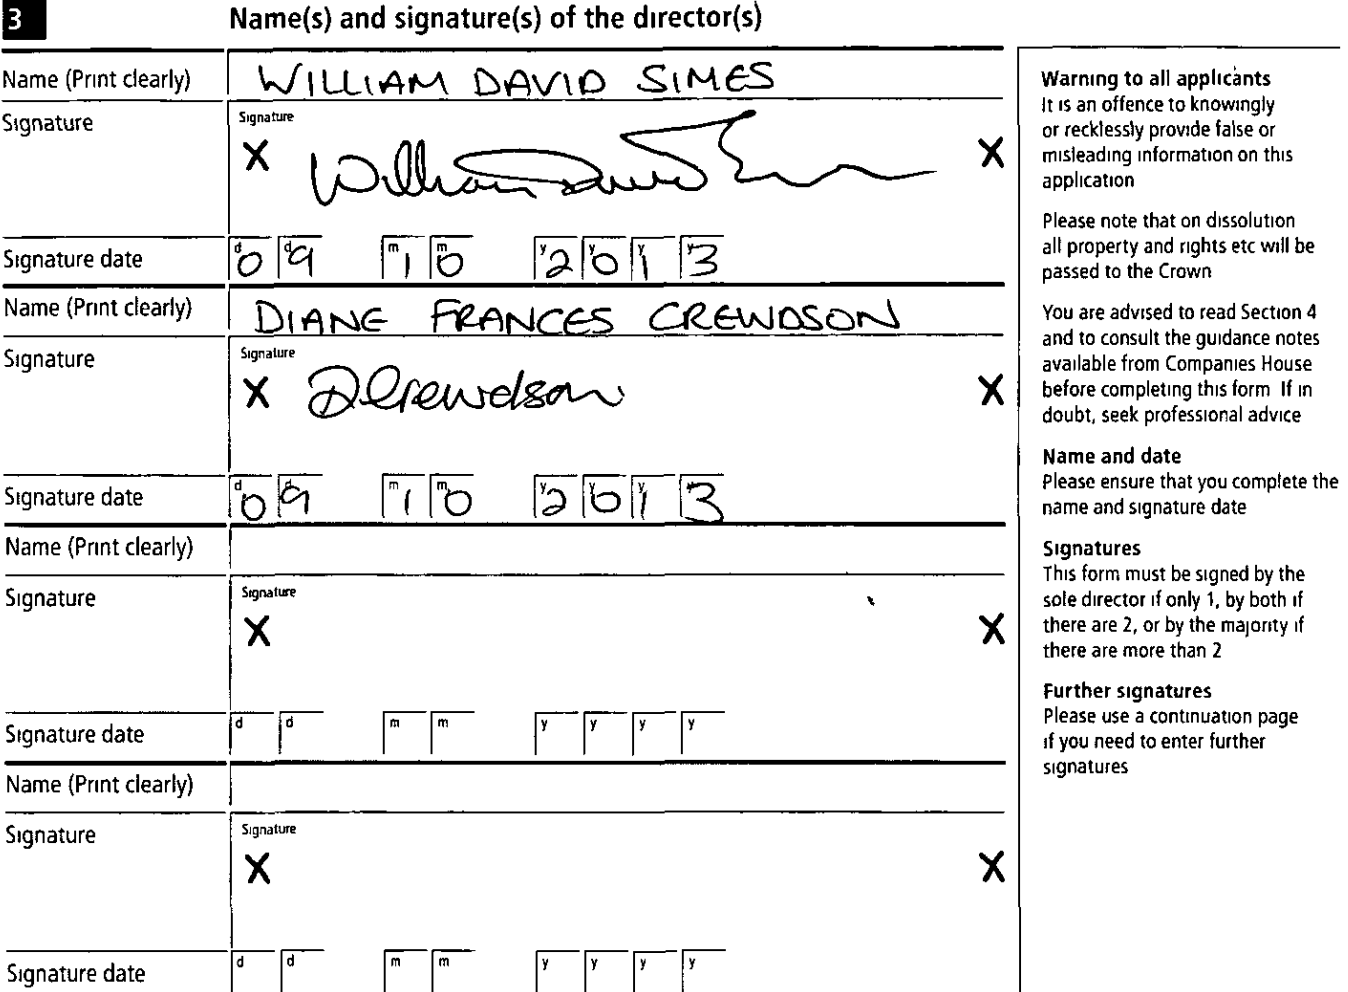 3 Name(s) and signature(s) of the director(s)
Name (Print clearly) WILLIAM DAVID SIMES
Signature
Signature
X William David X
Signature date d0 d9 m1 m0 y2 y0 y1 y3
Name (Print clearly) DIANE FRANCES CREWDSON
Signature
Signature
X DCrewdson X
Signature date d0 d9 m1 m0 y2 y0 y1 y3
Name (Print clearly)
Signature
Signature
X X
Signature date d d m m y y y y
Name (Print clearly)
Signature
Signature
X X
Signature date d d m m y y y y
Warning to all applicants
It is an offence to knowingly
or recklessly provide false or
misleading information on this
application
Please note that on dissolution
all property and rights etc will be
passed to the Crown
You are advised to read Section 4
and to consult the guidance notes
available from Companies House
before completing this form If in
doubt, seek professional advice
Name and date
Please ensure that you complete the
name and signature date
Signatures
This form must be signed by the
sole director if only 1, by both if
there are 2, or by the majority if
there are more than 2
Further signatures
Please use a continuation page
if you need to enter further
signatures